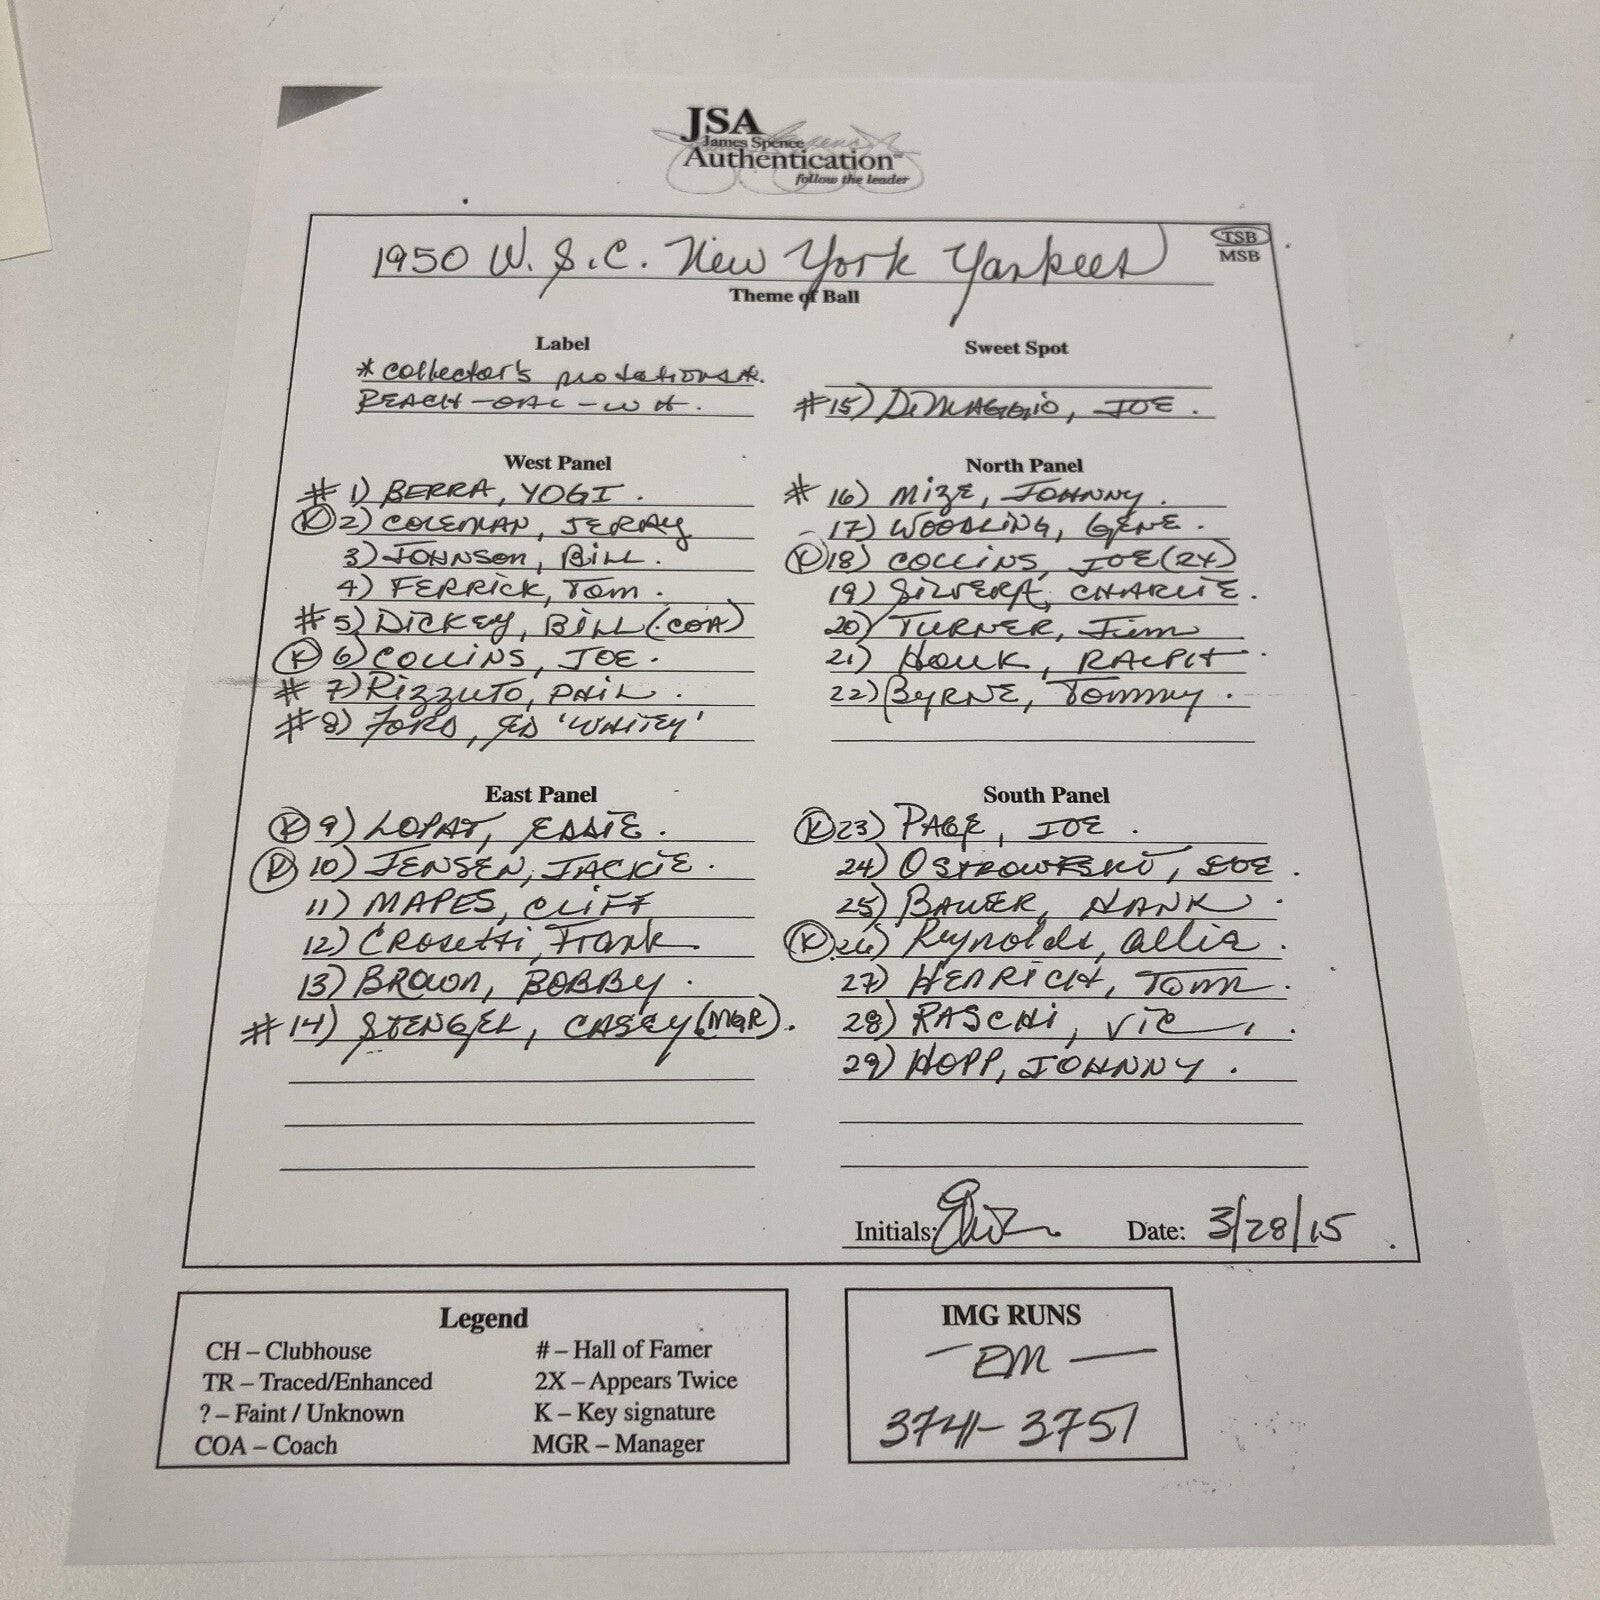 JSA
James Spence
Authentication
follow the leader
1950 W.S.C. New York Yankees
TSB
MSB
Theme of Ball
Label
* collector's notations *.
REACH-OAL-WH.
Sweet Spot
#15) DiMAGGIO, JOE.
West Panel
# 1) BERRA, YOGI.
K 2) COLEMAN, JERRY
3) JOHNSON, BILL.
4) FERRICK, Tom.
# 5) DICKEY, BILL (COA)
K 6) COLLINS, JOE.
# 7) RIZZUTO, PHIL.
# 8) FORD, ED 'WHITEY'
North Panel
# 16) MIZE, JOHNNY.
17) WOODLING, GENE.
K 18) COLLINS, JOE (2X)
19) SILVERA, CHARLIE.
20) TURNER, Jim
21) HOUK, RALPH.
22) BYRNE, Tommy.
East Panel
K 9) LOPAT, EDDIE.
K 10) JENSEN, JACKIE.
11) MAPES, CLIFF
12) CROSETTI, FRANK.
13) BROWN, BOBBY.
# 14) STENGEL, CASEY (MGR).
South Panel
K 23) PAGE, JOE.
24) OSTROWSKI, JOE.
25) BAUER, HANK.
K 26) Reynolds, Allie.
27) HENRICH, Tom.
28) RASCHI, VIC.
29) HOPP, JOHNNY.
Initials:
Date: 3/28/15
Legend
CH – Clubhouse
TR – Traced/Enhanced
? – Faint / Unknown
COA – Coach
# – Hall of Famer
2X – Appears Twice
K – Key signature
MGR – Manager
IMG RUNS
— EM —
3741-3751